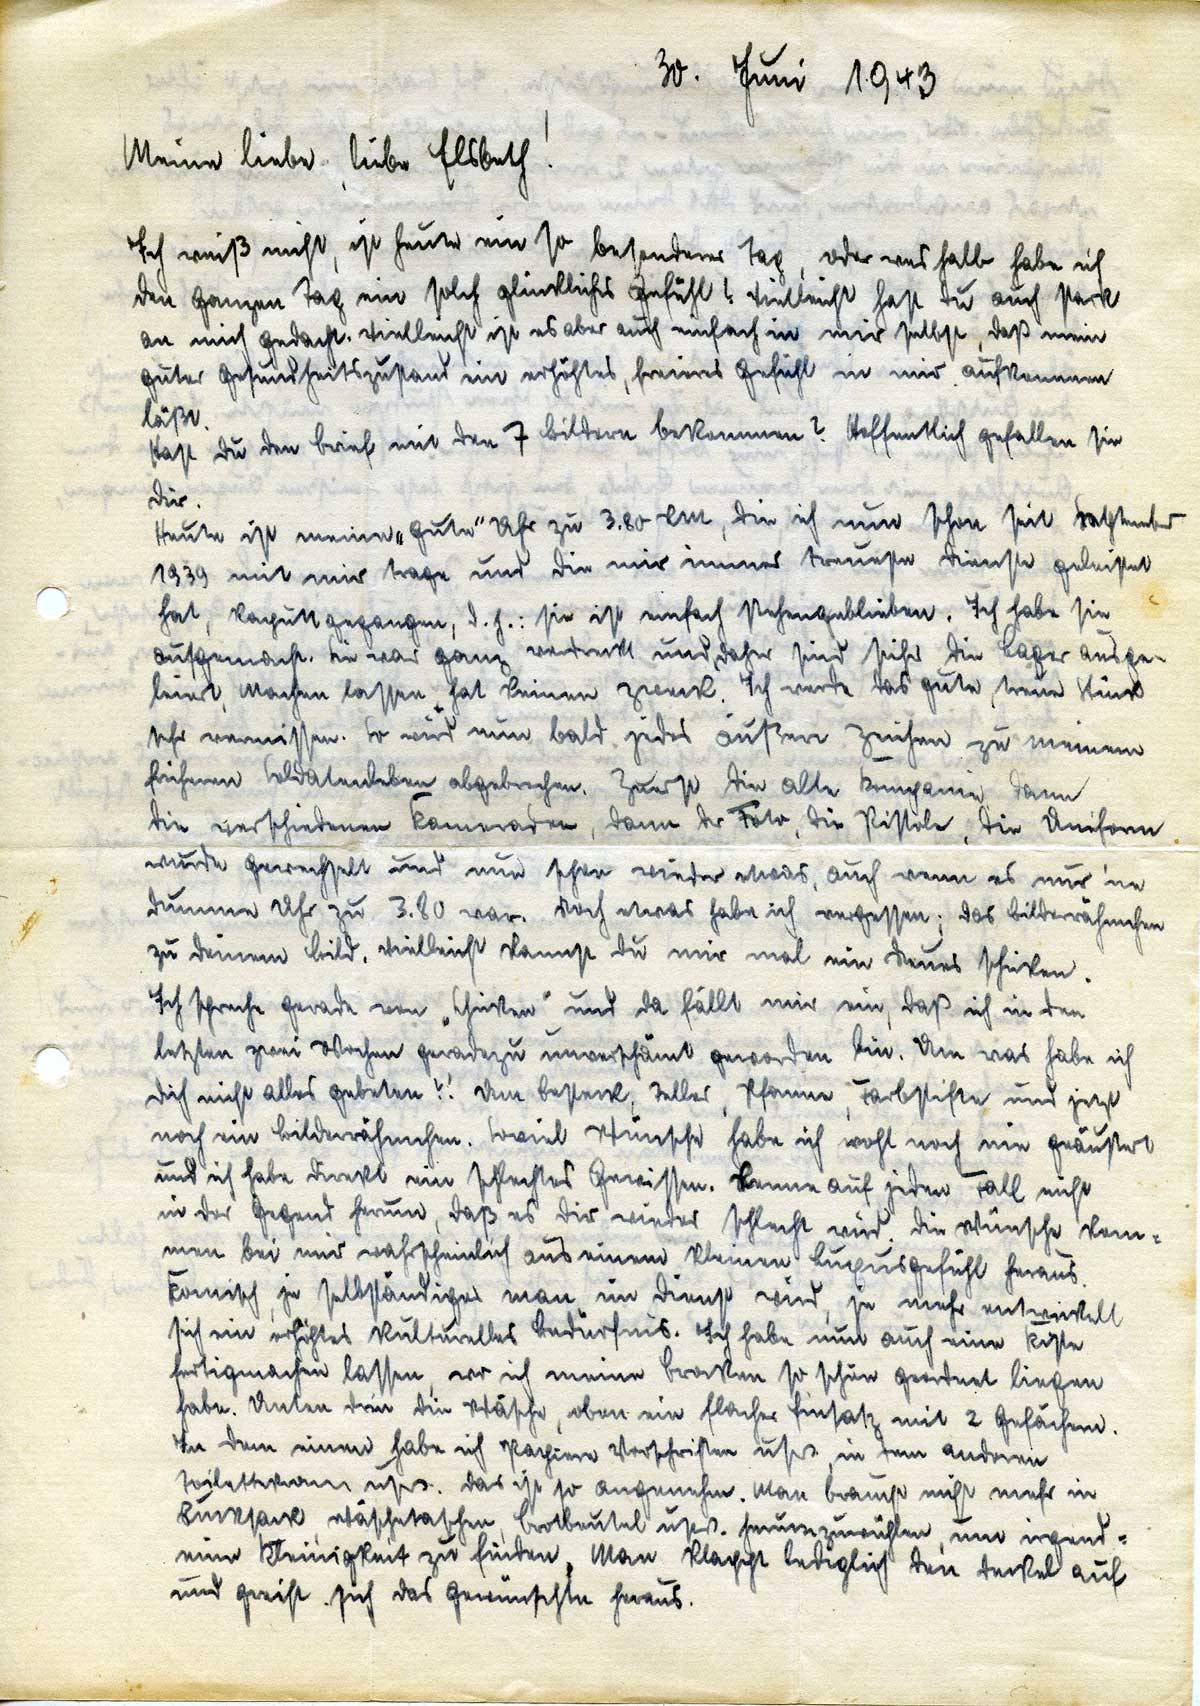 30. Juni 1943
Meine liebe, liebe Elsbeth!
Ich weiß nicht, ist heute ein so besonderer Tag, oder weshalb habe ich
den ganzen Tag ein solch glückliches Gefühl? Vielleicht hast du auch stark
an mich gedacht. Vielleicht ist es aber auch einfach in mir selbst, daß mein
guter Gesundheitszustand ein erhöhtes, freieres Gefühl in mir aufkommen
läßt.
Hast du den Brief mit den 7 Bildern bekommen? Hoffentlich gefallen sie
dir.
Heute ist meine „gute" Uhr zu 3.80 RM, die ich nun schon seit September
1939 mit mir trage und die mir immer treueste Dienste geleistet
hat, kaputt gegangen, d.h.: sie ist einfach stehengeblieben. Ich habe sie
aufgemacht. Sie war ganz verdreckt und daher sind sicher die Lager ausge-
leiert. Machen lassen hat keinen Zweck. Ich werde das gute, treue Stück
sehr vermissen. So wird nun bald jedes äußere Zeichen zu meinem
früheren Soldatenleben abgebrochen. Zuerst die alte Kompanie, dann
die verschiedenen Kameraden, dann der Foto, die Pistole, die Uniform
wurde gewechselt und nun schon wieder etwas, auch wenn es nur 'ne
dumme Uhr zu 3.80 war. Noch etwas habe ich vergessen; das Bilderrähmchen
zu deinem Bild. Vielleicht kannst du mir mal ein neues schicken.
Ich spreche gerade von „Schicken" und da fällt mir ein, daß ich in den
letzten zwei Wochen geradezu unverschämt geworden bin. Um was habe ich
dich nicht alles gebeten?! Um Besteck, Teller, Pfanne, Farbstifte und jetzt
noch ein Bilderrähmchen. Soviel Wünsche habe ich wohl noch nie geäußert
und ich habe direkt ein schlechtes Gewissen. Renne auf jeden Fall nicht
in der Gegend herum, daß es dir wieder schlecht wird. Die Wünsche kom-
men bei mir wahrscheinlich aus einem kleinen Luxusgefühl heraus.
Komisch, je selbständiger man im Dienst wird, je mehr entwickelt
sich ein erhöhtes kulturelles Bedürfnis. Ich habe nun auch eine Kiste
fertigmachen lassen, wo ich meine Brocken so schön geordnet liegen
habe. Unten drin die Wäsche, oben ein flacher Einsatz mit 2 Gefächern.
In dem einen habe ich Papiere Vorschriften usw, in dem anderen
Toilettekram usw. Das ist so angenehm. Man braucht nicht mehr in
Rucksack, Wäschetaschen, Brotbeutel usw. herumzuwühlen, um irgend-
eine Kleinigkeit zu finden. Man klappt lediglich den Deckel auf
und greift sich das Gewünschte heraus.